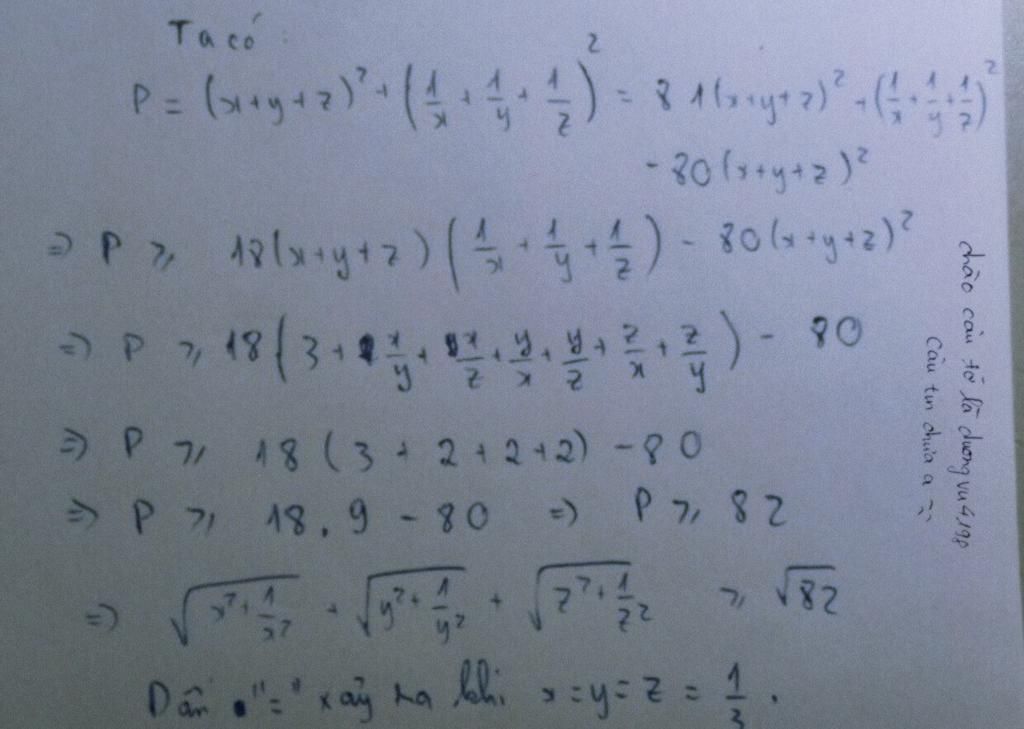 Ta có :
P = (x+y+z)² + (1/x + 1/y + 1/z)² = 81(x+y+z)² + (1/x + 1/y + 1/z)²
- 80(x+y+z)²
=> P ≥ 18(x+y+z)(1/x + 1/y + 1/z) - 80(x+y+z)²
=> P ≥ 18(3 + x/y + x/z + y/x + y/z + z/x + z/y) - 80
=> P ≥ 18(3 + 2 + 2 + 2) - 80
=> P ≥ 18.9 - 80 => P ≥ 82
=> √(x² + 1/x²) + √(y² + 1/y²) + √(z² + 1/z²) ≥ √82
Dấu "=" xảy ra khi x = y = z = 1/3.
chào cậu tớ là duongvu4198
cậu tin chưa ạ